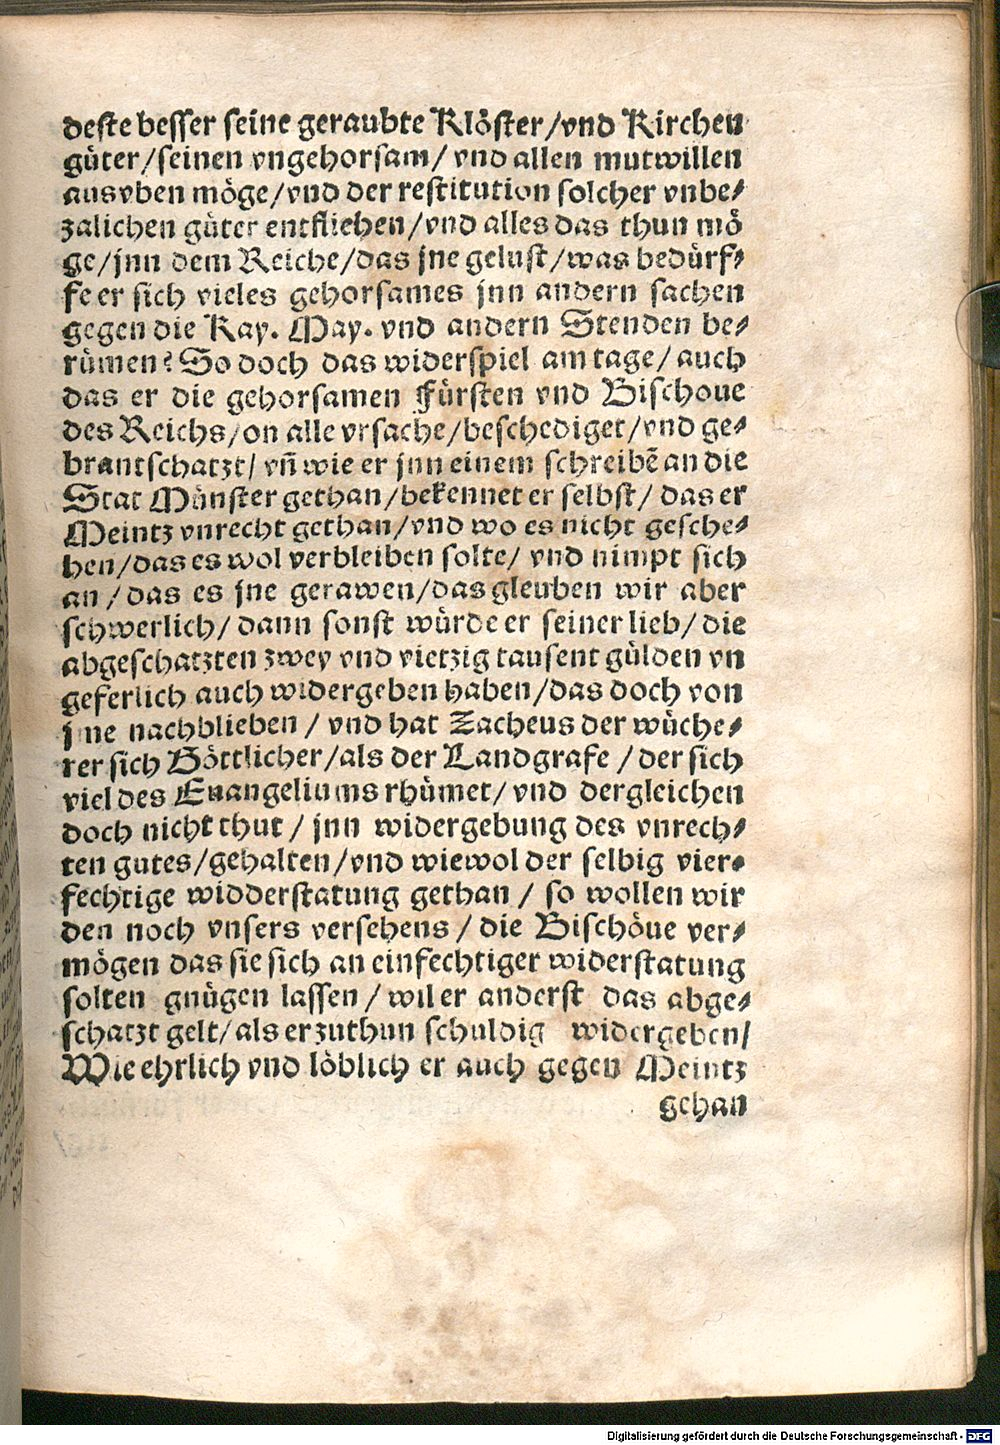 deste besser seine geraubte Klöster/vnd Kirchen
güter/seinen vngehorsam/ vnd allen mutwillen
ausvben möge/vnd der restitution solcher vnbe⸗
zalichen güter entfliehen/vnd alles das thun mö
ge/jnn dem Reiche/das jne gelust/was bedürf⸗
fe er sich vieles gehorsames jnn andern sachen
gegen die Kay. May. vnd andern Stenden be⸗
rümen? So doch das widerspiel am tage/ auch
das er die gehorsamen Fürsten vnd Bischoue
des Reichs/on alle vrsache/beschediget/vnd ge⸗
brantschatzt/ vñ wie er jnn einem schreibē an die
Stat Münster gethan/bekennet er selbst/ das er
Meintz vnrecht gethan/vnd wo es nicht gesche⸗
hen/das es wol verbleiben solte/ vnd nimpt sich
an/das es jne gerawen/das gleuben wir aber
schwerlich/ dann sonst würde er seiner lieb/ die
abgeschatzten zwey vnd viertzig tausent gülden vn
geferlich auch widergeben haben/das doch von
jne nachblieben / vnd hat Zacheus der wüche⸗
rer sich Göttlicher/als der Landgrafe / der sich
viel des Euangeliums rhümet/ vnd dergleichen
doch nicht thut / jnn widergebung des vnrech⸗
ten gutes/gehalten/vnd wiewol der selbig vier⸗
fechtige widderstatung gethan / so wollen wir
den noch vnsers versehens / die Bischöue ver⸗
mögen das sie sich an einfechtiger widerstatung
solten gnügen lassen / wil er anderst das abge⸗
schatzt gelt/ als er zuthun schuldig widergeben/
Wie ehrlich vnd löblich er auch gegen Meintz
gehan
Digitalisierung gefördert durch die Deutsche Forschungsgemeinschaft - DFG